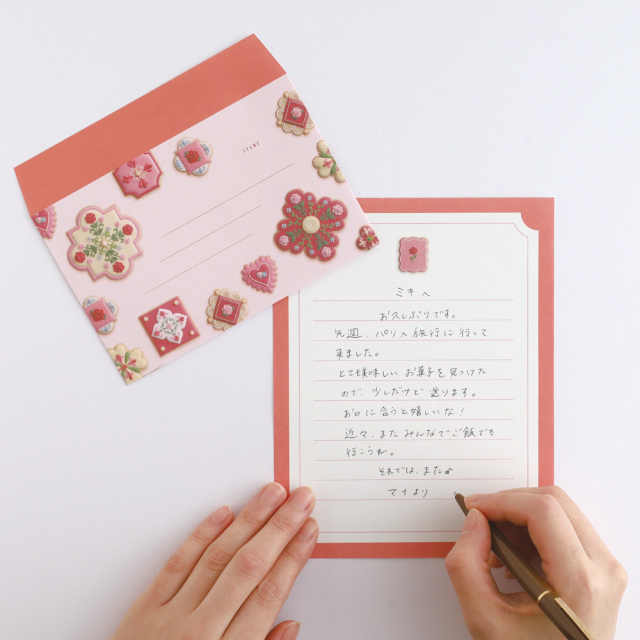 ミキへ
お久しぶりです。
先週、パリへ旅行に行って
来ました。
とても美味しいお菓子を見つけた
ので、少しだけど送ります。
お口に合うと嬉しいな！
近々、またみんなでご飯でも
行こうね。
それでは、また☆
マイより